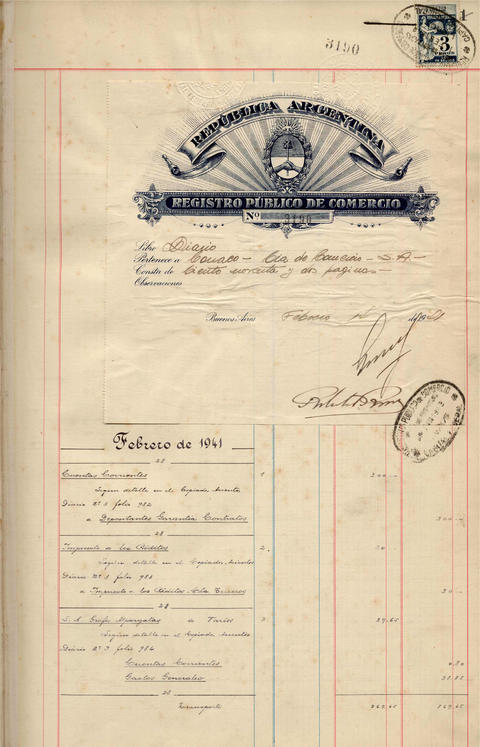 1
3190
3
REPÚBLICA ARGENTINA
REGISTRO PÚBLICO DE COMERCIO
Nº 3190
Libro Diario
Pertenece a Conaco - Cia de Comercio - S.A.-
Consta de Ciento noventa y dos paginas-
Observaciones
Buenos Aires Febrero
Febrero de 1941
28
Cuentas Corrientes 1 300.--
Según detalle en el Copiador Asientos
Diario Nº 3 folio 982
a Depositantes Garantía Contratos 300.--
28
Impuesto a los Réditos 2. 30.--
Según detalle en el Copiador Asientos
Diario Nº 3 folio 983
a Impuesto a los Réditos 30.--
28
S.A. Alpargatas a Varios 3. 39.65
Según detalle en el Copiador Asientos
Diario Nº 3 folio 984
Cuentas Corrientes 0.80
Gastos Generales 38.85
28
Transporte 369.65 369.65